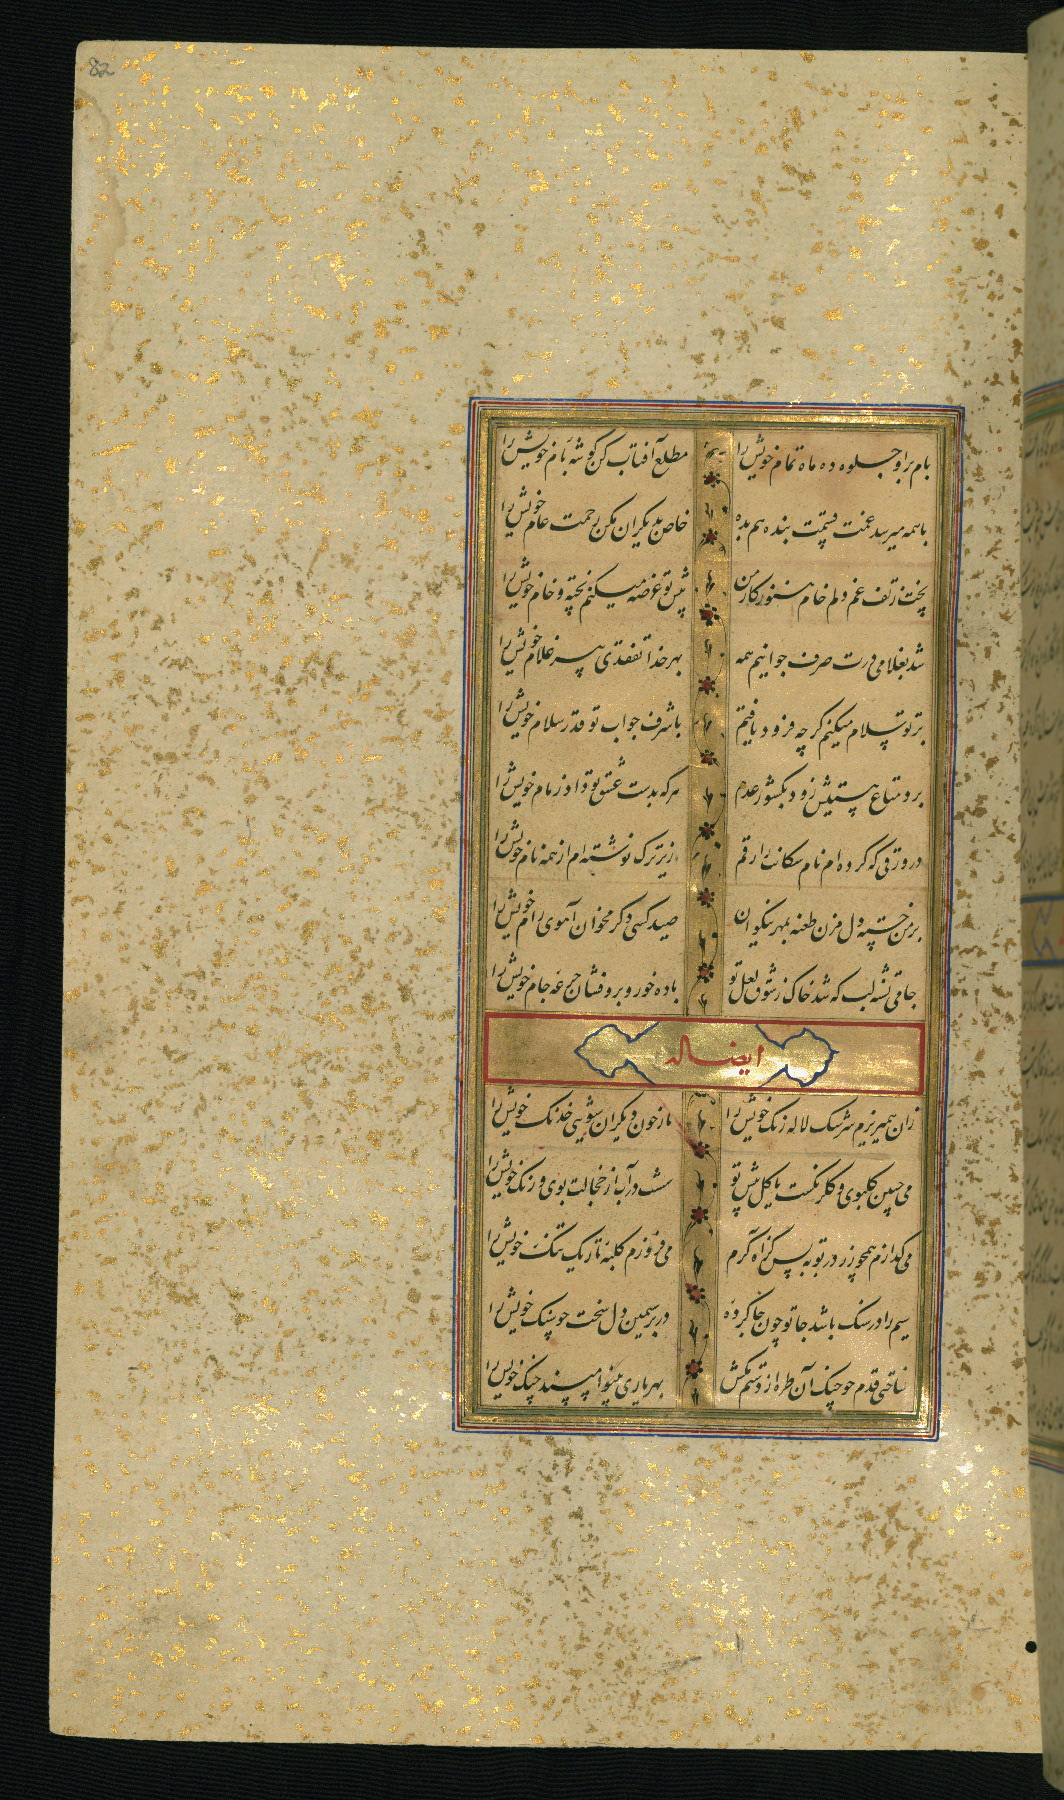 82
بام برا و جلوه ده ماه تمام خویش را
مطلع آفتاب کن گوشه بام خویش را
با همه میرسد غمت قسمت بنده هم بده
خاص بدیگران مکن رحمت عام خویش را
پخت ز تف غم دلم خام هنوز کار من
پیش تو عرضه میکنم پخته و خام خویش را
شد بغلامی درت صرف جوانیم همه
بهر خدا تفقدی پیر غلام خویش را
بر تو سلام میکنم گر چه فزود یافتم
با شرف جواب تو قدر سلام خویش را
برد متاع هستیش زود بکشور عدم
هر که بدست عشق تو داد زمام خویش را
در ورقی که کرده ام نام سگانت را رقم
زیرترک نوشته ام از همه نام خویش را
بر من خسته دل مزن طعنه بمهر نیکوان
صید کسی دگر مخوان آهوی رام خویش را
جامی تشنه لب که شد خاک ز شوق لعل تو
باده خور و برو فشان جرعه جام خویش را
ایضا له
زان همیریزم سرشک لاله رنگ خویش را
تا ز خون دیگران شویی خدنگ خویش را
می چین گلبوی و گلرنگست یا گل پیش تو
شست در آب از خجالت بوی و رنگ خویش را
می گدازم همچو زر در بوته پس کز آه گرم
می فروزم کلبه تاریک تنگ خویش را
سیم را در سنگ باشد جا تو چون جا کرده
در بر سیمین دل سخت چو سنگ خویش را
ساختی قدم چو چنگ آن طره از دستم مکش
بهر یاری مینوا مپسند چنگ خویش را